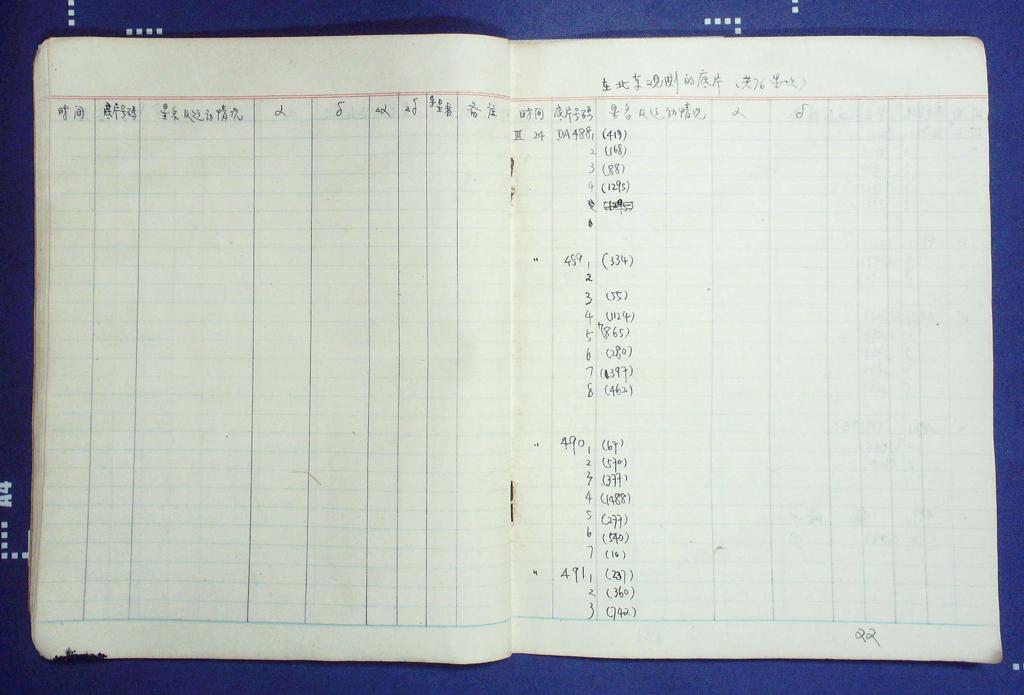 时间 底片号码 星名及运动情况 α δ Δα Δδ 星等 备注
在北京观测的底片 (共76星次)
时间 底片号码 星名及运动情况 α δ
III 24 DA488 1 (419)
2 (168)
3 (88)
4 (1295)
" 489 1 (334)
2
3 (55)
4 (1124)
5 (865)
6 (280)
7 (1397)
8 (462)
" 490 1 (67)
2 (570)
3 (377)
4 (1488)
5 (277)
6 (540)
7 (10)
" 491 1 (237)
2 (360)
3 (742)
22
A4